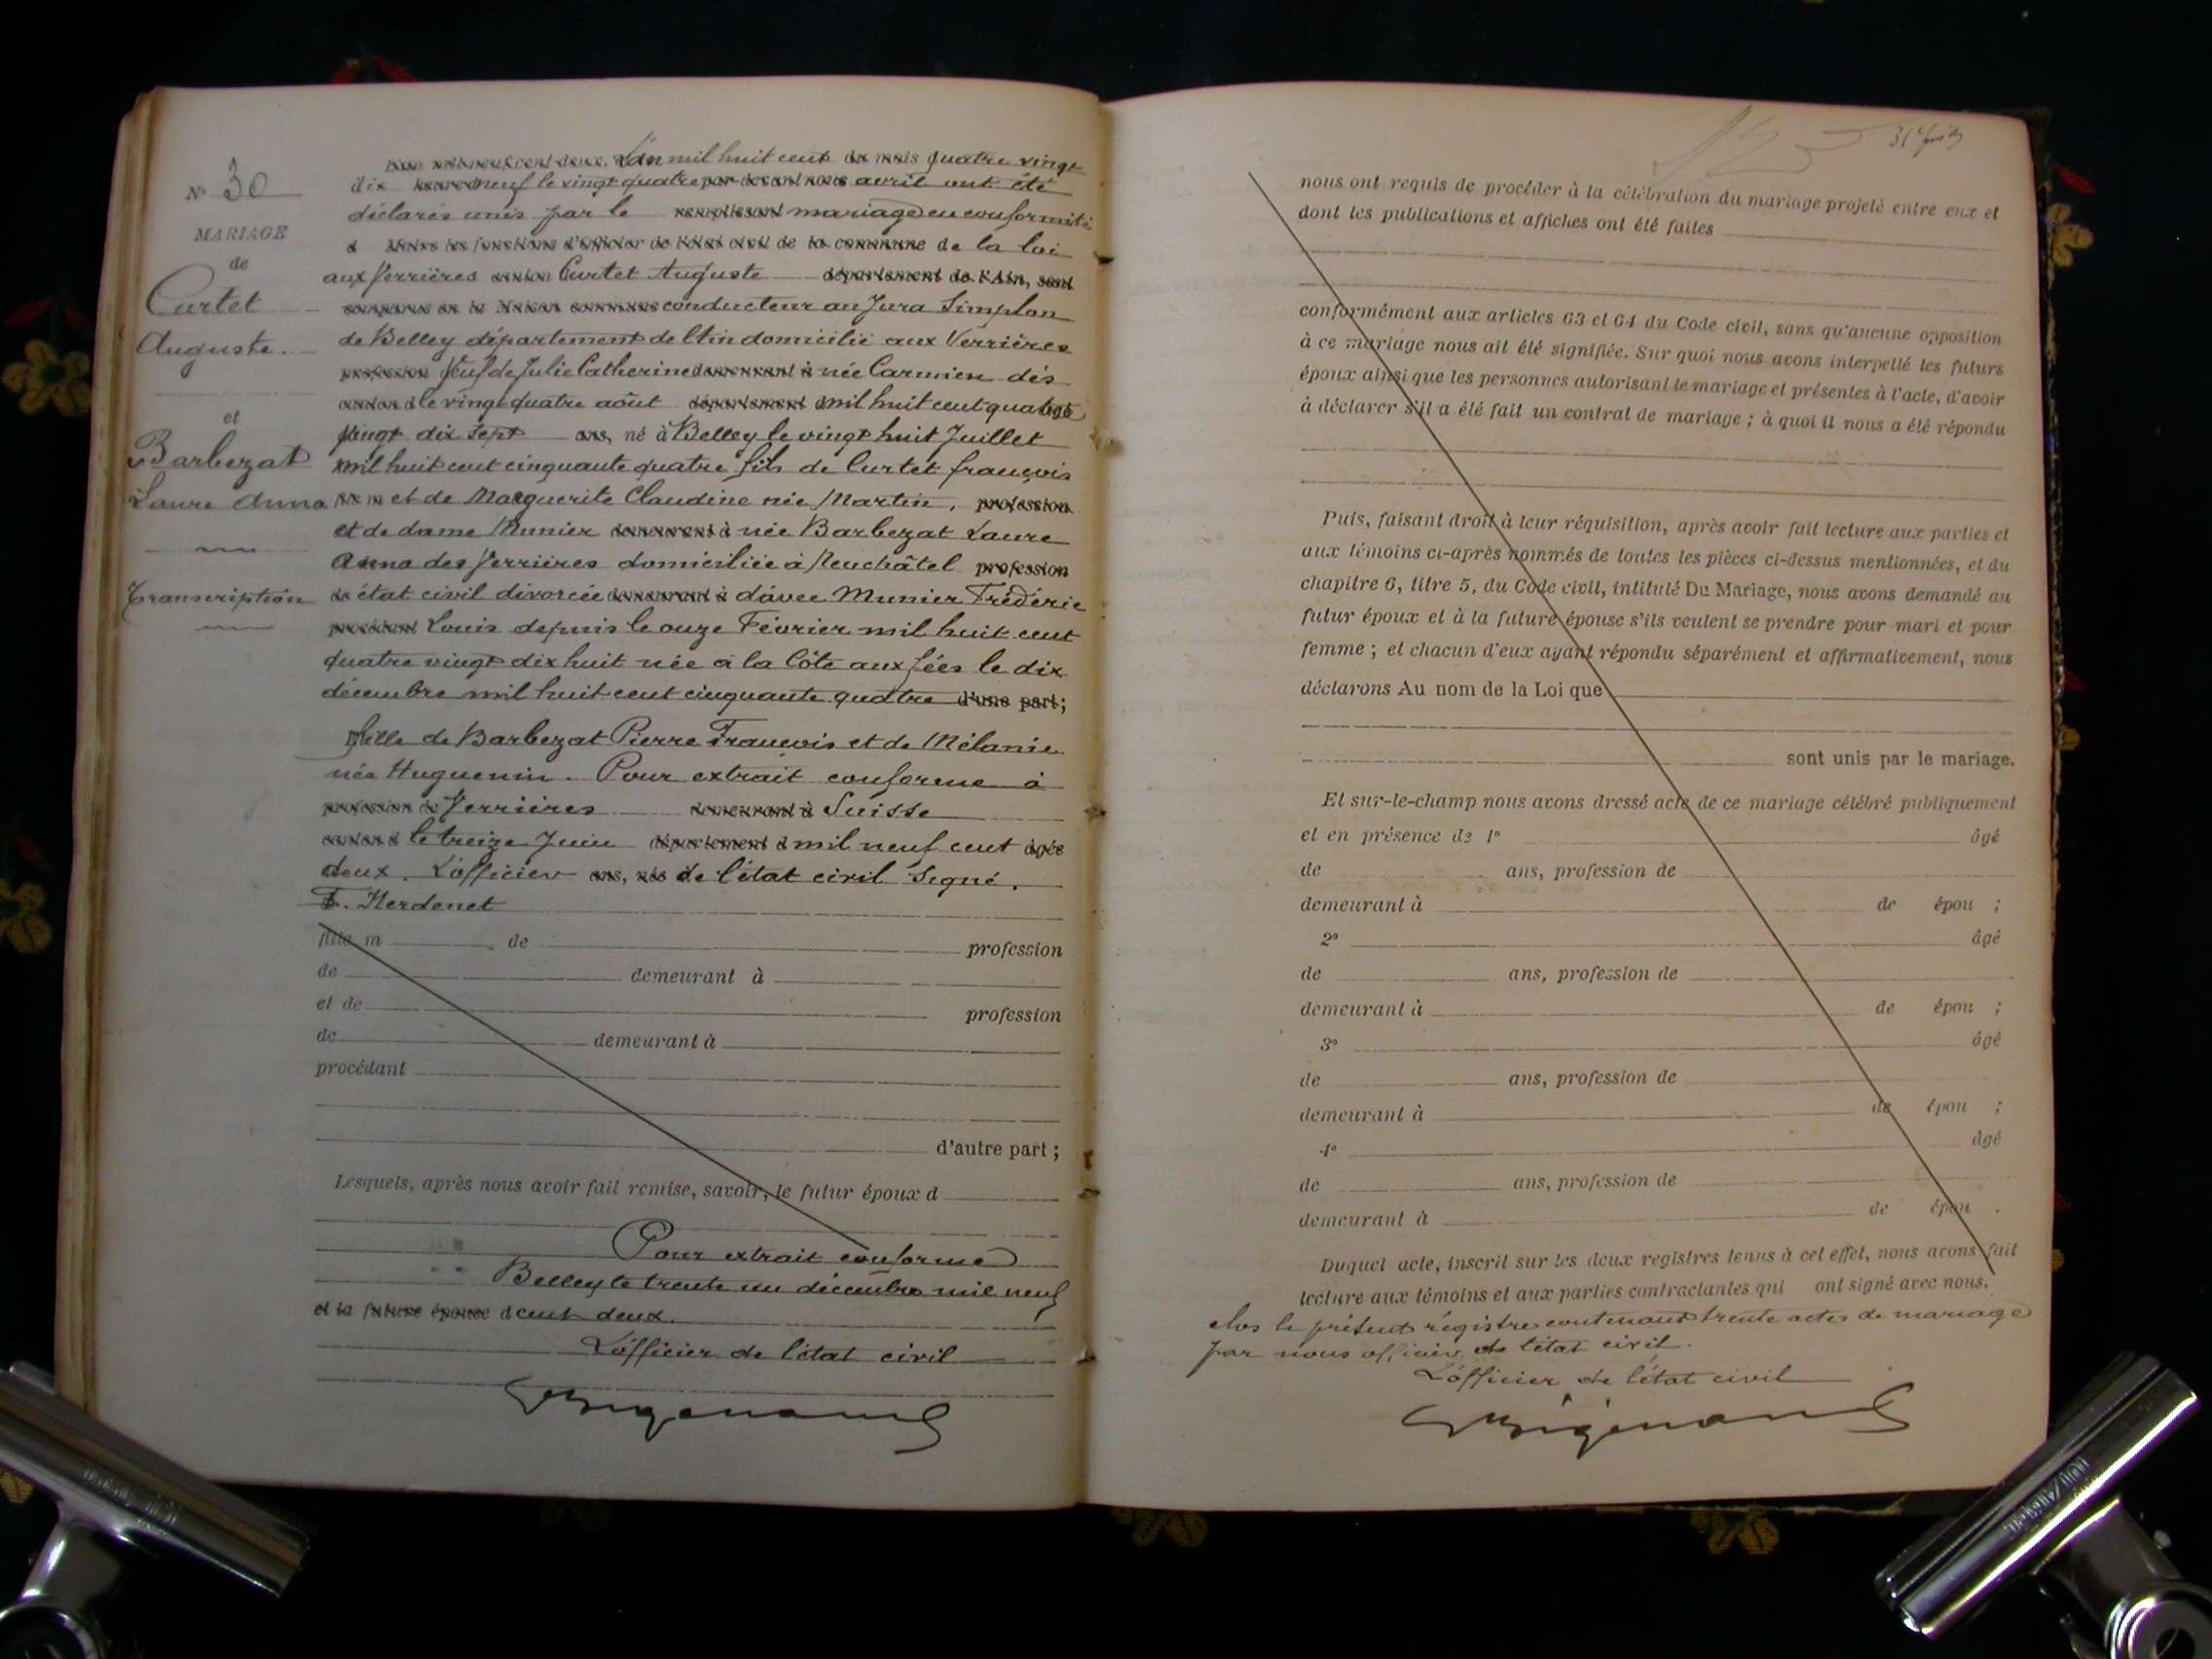 N° 30
MARIAGE
de
Curtet
Auguste.
et
Barbezat
Laure Anna
Transcription
L'an mil neuf cent deux, L'an mil huit cent du mois quatre vingt
dix heures neuf le vingt quatre par-devant nous avril ont été
déclarés unis par le remplissant mariage en conformité
d Maire les fonctions d'Officier de l'état civil de la commune de la loi
aux Verrières canton Curtet Auguste département de l'Ain, sont
comparus en la Maison commune conducteur au Jura Simplon
de Belley département de l'Ain domicilié aux Verrières
profession Veuf de Julie Catherine demeurant à née Carmien dès
canton d le vingt quatre août département d mil huit cent quatre
vingt dix sept ans, né à Belley le vingt huit Juillet
mil huit cent cinquante quatre fils de Curtet françois
et de Marguerite Claudine née Martin, profession
et de dame Munier demeurant à née Barbezat Laure
Anna des Verrières domiciliée à Neuchâtel profession
de état civil divorcée demeurant à d'avec Munier Frédéric
procédant Louis depuis le onze Février mil huit cent
quatre vingt dix huit née à la Côte aux fées le dix
décembre mil huit cent cinquante quatre d'une part;
fille de Barbezat Pierre François et de Mélanie
née Huguenin. Pour extrait conforme à
profession de Verrières demeurant à Suisse
canton d le treize Juin département d mil neuf cent âgée
deux. L'officier ans, née de l'état civil Signé.
F. Herdenet
fille m de profession
de demeurant à
et de profession
de demeurant à
procédant
d'autre part;
Lesquels, après nous avoir fait remise, savoir, le futur époux d
Pour extrait conforme
Belley le trente un décembre mil neuf
et la future épouse d cent deux.
L'officier de l'état civil
31e
nous ont requis de procéder à la célébration du mariage projeté entre eux et
dont les publications et affiches ont été faites
conformément aux articles 63 et 64 du Code civil, sans qu'aucune opposition
à ce mariage nous ait été signifiée. Sur quoi nous avons interpellé les futurs
époux ainsi que les personnes autorisant le mariage et présentes à l'acte, d'avoir
à déclarer s'il a été fait un contrat de mariage; à quoi il nous a été répondu
Puis, faisant droit à leur réquisition, après avoir fait lecture aux parties et
aux témoins ci-après nommés de toutes les pièces ci-dessus mentionnées, et du
chapitre 6, titre 5, du Code civil, intitulé Du Mariage, nous avons demandé au
futur époux et à la future épouse s'ils veulent se prendre pour mari et pour
femme; et chacun d'eux ayant répondu séparément et affirmativement, nous
déclarons Au nom de la Loi que
sont unis par le mariage.
Et sur-le-champ nous avons dressé acte de ce mariage célébré publiquement
et en présence de 1° âgé
de ans, profession de
demeurant à de épou ;
2° âgé
de ans, profession de
demeurant à de épou ;
3° âgé
de ans, profession de
demeurant à de épou ;
4° âgé
de ans, profession de
demeurant à de épou .
Duquel acte, inscrit sur les deux registres tenus à cet effet, nous avons fait
lecture aux témoins et aux parties contractantes qui ont signé avec nous.
clos le présent registre contenant trente actes de mariage
par nous officier de l'état civil.
L'officier de l'état civil